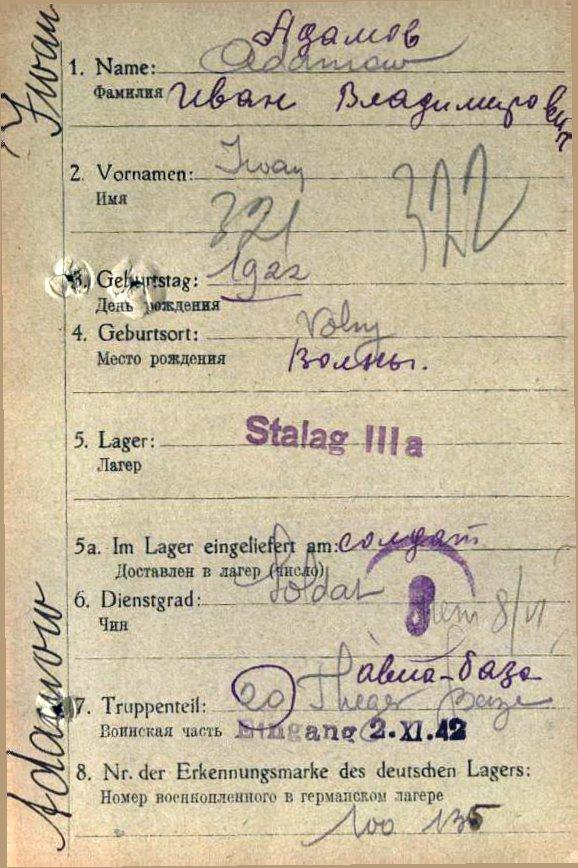 Iwan
Адамов
1. Name: Adamow
Фамилия Иван Владимирович
2. Vornamen: Iwan
Имя
321 322
3. Geburtstag: 1922
День рождения
4. Geburtsort: Volny
Место рождения Волны.
5. Lager: Stalag IIIa
Лагерь
5a. Im Lager eingeliefert am: солдат
Доставлен в лагерь (число)
6. Dienstgrad: Soldat
Чин
8/VI
авиа-база
7. Truppenteil: 20
Воинская часть Eingang 2.XI.42
8. Nr. der Erkennungsmarke des deutschen Lagers:
Номер военнопленного в германском лагере
100 135
Adamow